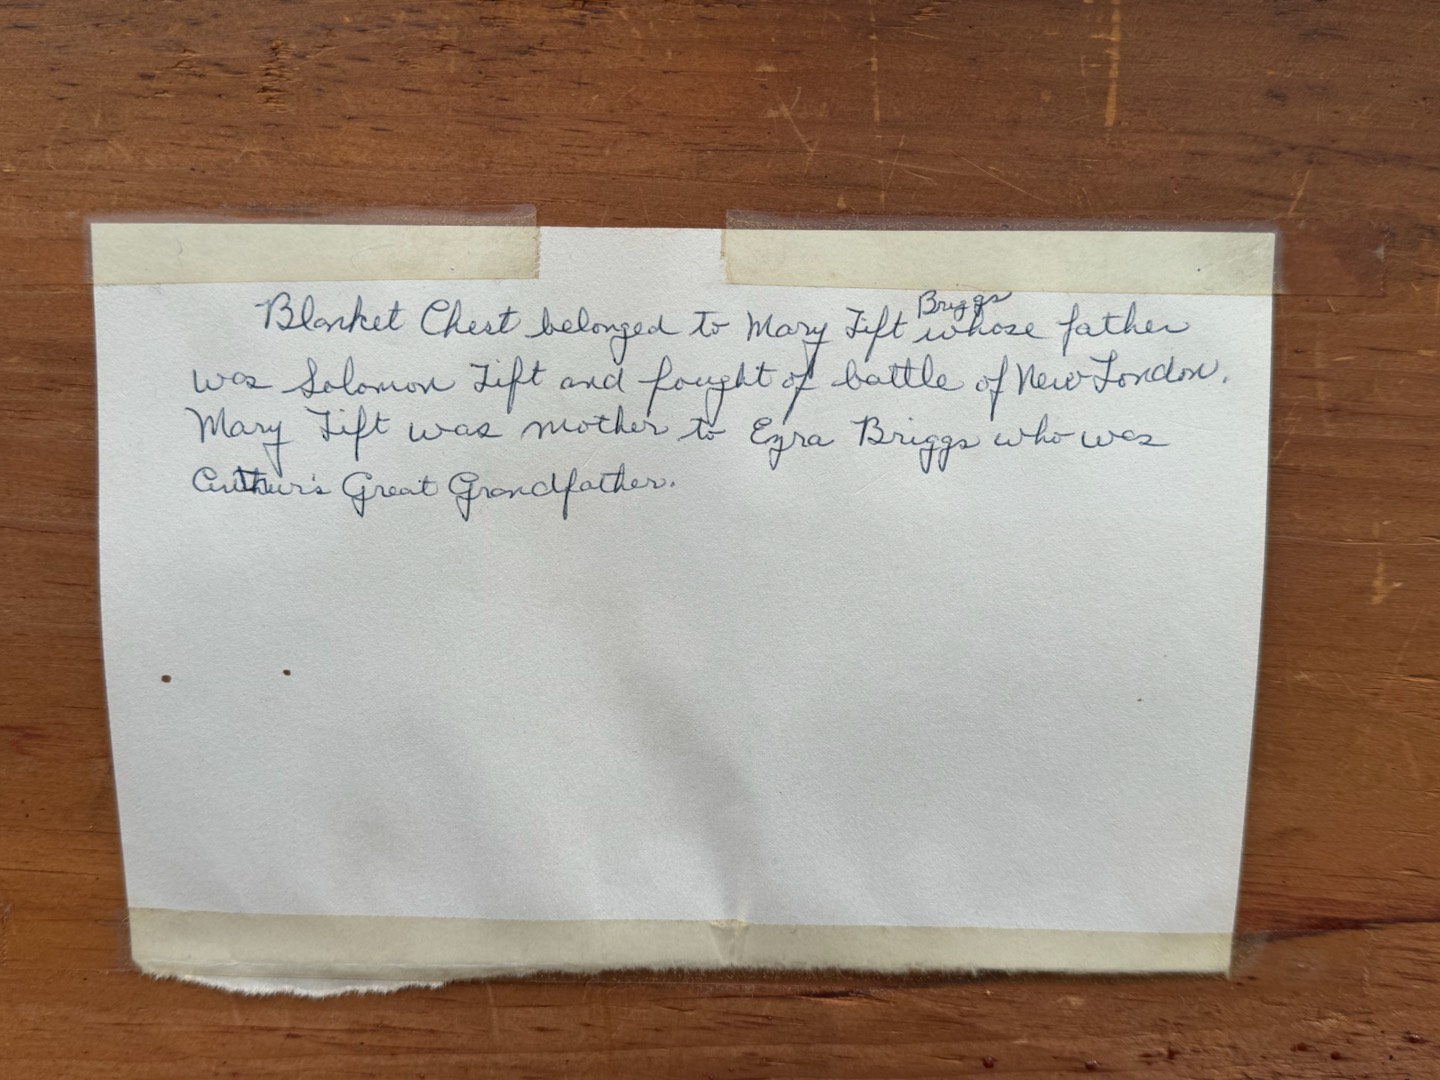 Blanket Chest belonged to Mary Tift Briggs whose father
was Solomon Tift and fought of battle of New London.
Mary Tift was mother to Ezra Briggs who was
Arthur's Great Grandfather.